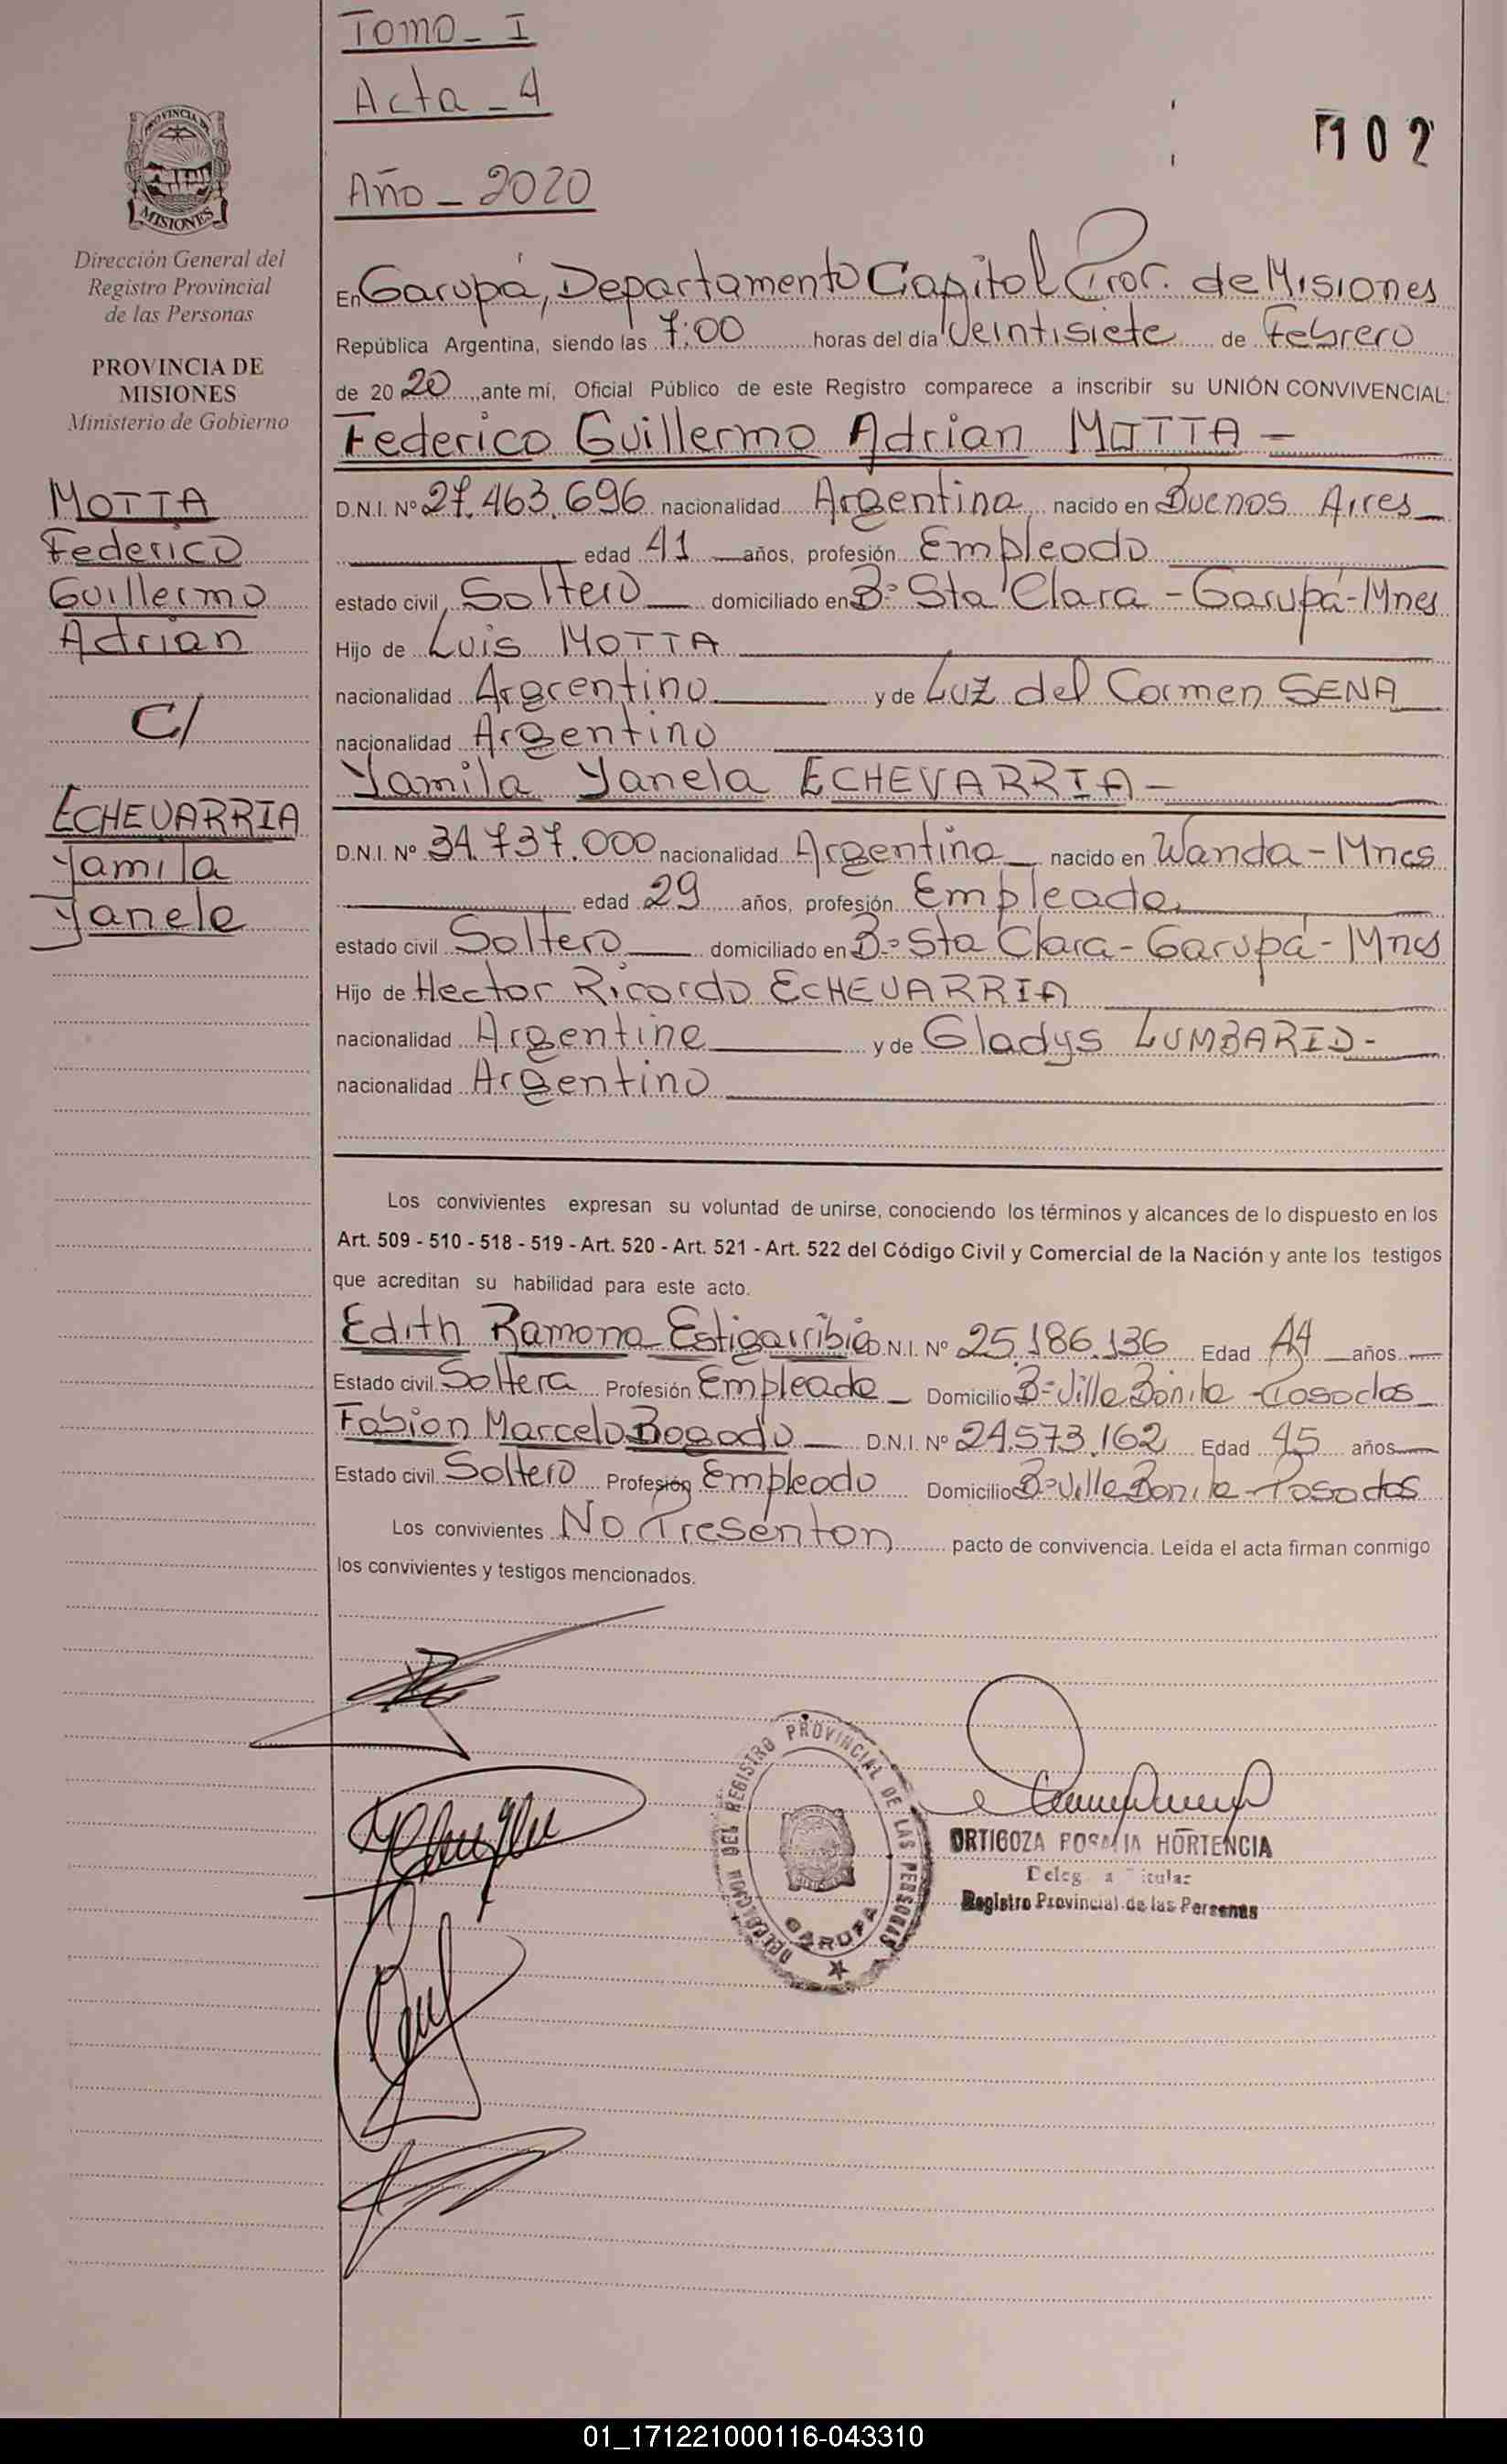 Tomo - I
Acta - 4
102
Año - 2020
PROVINCIA DE
MISIONES
Dirección General del
Registro Provincial
de las Personas
PROVINCIA DE
MISIONES
Ministerio de Gobierno
MOTTA
Federico
Guillermo
Adrian
C/
ECHEVARRIA
Yamila
Yanela
En Garupá, Departamento Capital Prov. de Misiones
República Argentina, siendo las 7:00 horas del día Veintisiete de Febrero
de 20 20 ante mí, Oficial Público de este Registro comparece a inscribir su UNIÓN CONVIVENCIAL:
Federico Guillermo Adrian MOTTA -
D.N.I. Nº 27.463.696 nacionalidad Argentina nacido en Buenos Aires -
edad 41 años, profesión Empleado
estado civil Soltero domiciliado en Bº Sta Clara - Garupá - Mnes
Hijo de Luis MOTTA
nacionalidad Argentino y de Luz del Carmen SENA
nacionalidad Argentino
Yamila Yanela ECHEVARRIA -
D.N.I. Nº 34.737.000 nacionalidad Argentina nacido en Wanda - Mnes
edad 29 años, profesión Empleada
estado civil Soltero domiciliado en Bº Sta Clara - Garupá - Mnes
Hijo de Hector Ricardo ECHEVARRIA
nacionalidad Argentina y de Gladys LUMBARID -
nacionalidad Argentino
Los convivientes expresan su voluntad de unirse, conociendo los términos y alcances de lo dispuesto en los
Art. 509 - 510 - 518 - 519 - Art. 520 - Art. 521 - Art. 522 del Código Civil y Comercial de la Nación y ante los testigos
que acreditan su habilidad para este acto.
Edith Ramona Estigarribia D.N.I. Nº 25.186.136 Edad 44 años
Estado civil Soltera Profesión Empleada - Domicilio Bº Villa Bonita - Posadas
Fabian Marcelo Bogado D.N.I. Nº 24.573.162 Edad 45 años
Estado civil Soltero Profesión Empleado Domicilio Bº Villa Bonita - Posadas
Los convivientes No Presentan pacto de convivencia. Leída el acta firman conmigo
los convivientes y testigos mencionados.
DELEGACION DEL REGISTRO PROVINCIAL DE LAS PERSONAS
GARUPA
ORTIGOZA ROSALIA HORTENCIA
Registro Provincial de las Personas
01_171221000116-043310